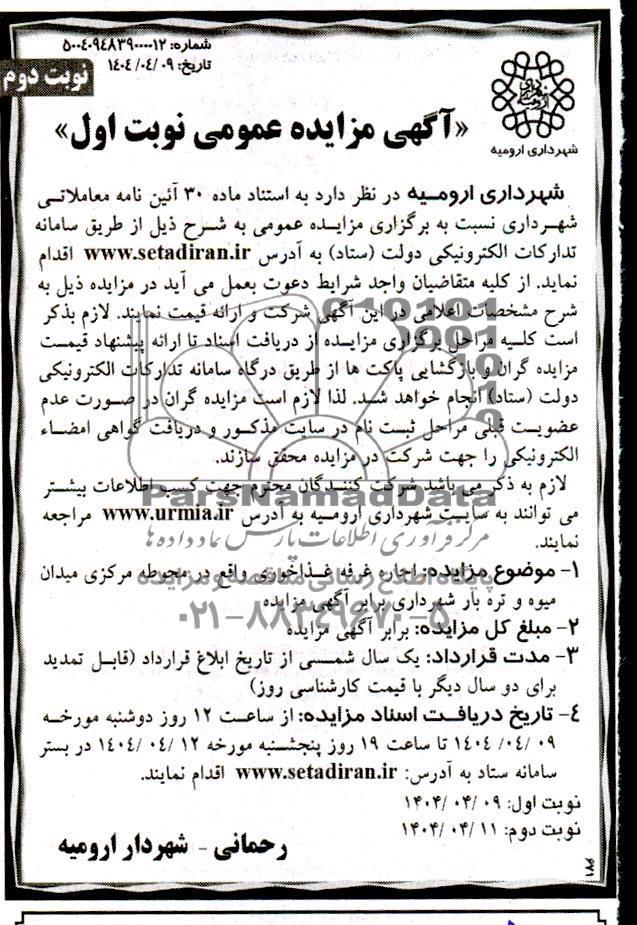 شماره: ۵۰۰۴۰۹۴۸۳۹۰۰۰۰۱۲
تاریخ: ۰۹ /۰۴/ ۱۴۰۴
نوبت دوم
شهرداری ارومیه
«آگهی مزایده عمومی نوبت اول»
شهرداری ارومیه در نظر دارد به استناد ماده ۳۰ آئین نامه معاملاتی
شهرداری نسبت به برگزاری مزایده عمومی به شرح ذیل از طریق سامانه
تدارکات الکترونیکی دولت (ستاد) به آدرس www.setadiran.ir اقدام
نماید. از کلیه متقاضیان واجد شرایط دعوت بعمل می آید در مزایده ذیل به
شرح مشخصات اعلامی در این آگهی شرکت و ارائه قیمت نمایند. لازم بذکر
است کلیه مراحل برگزاری مزایده از دریافت اسناد تا ارائه پیشنهاد قیمت
مزایده گران و بازگشایی پاکت ها از طریق درگاه سامانه تدارکات الکترونیکی
دولت (ستاد) انجام خواهد شد. لذا لازم است مزایده گران در صورت عدم
عضویت قبلی مراحل ثبت نام در سایت مذکور و دریافت گواهی امضاء
الکترونیکی را جهت شرکت در مزایده محقق سازند.
لازم به ذکر می باشد شرکت کنندگان محترم جهت کسب اطلاعات بیشتر
ParsNamadData
می توانند به سایت شهرداری ارومیه به آدرس www.urmia.ir مراجعه
نمایند.
مرکز فرآوری اطلاعات پارس نماد داده ها
۱- موضوع مزایده: اجاره غرفه غذاخوری واقع در محوطه مرکزی میدان
پایگاه اطلاع رسانی مناقصه و مزایده
میوه و تره بار شهرداری برابر آگهی مزایده
۰۲۱-۸۸۳۴۹۶۷۰-۵
۲- مبلغ کل مزایده: برابر آگهی مزایده
۳- مدت قرارداد: یک سال شمسی از تاریخ ابلاغ قرارداد (قابل تمدید
برای دو سال دیگر با قیمت کارشناسی روز)
۴- تاریخ دریافت اسناد مزایده: از ساعت ۱۲ روز دوشنبه مورخه
۰۹ /۰۴/ ۱۴۰۴ تا ساعت ۱۹ روز پنجشنبه مورخه ۱۲ /۰۴ /۱۴۰۴ در بستر
سامانه ستاد به آدرس: www.setadiran.ir اقدام نمایند.
نوبت اول: ۰۹ /۰۴ /۱۴۰۴
نوبت دوم: ۱۱ /۰۴ /۱۴۰۴
رحمانی - شهردار ارومیه